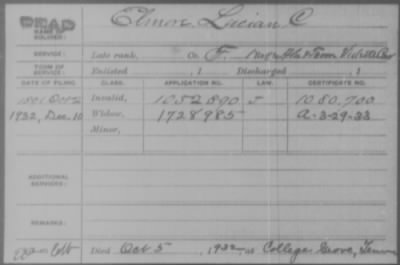 DEAD
NAME OF SOLDIER: Elmore, Lucian C
SERVICE: Late rank, Co. F,
TERM OF SERVICE: Enlisted , 1 Discharged , 1
DATE OF FILING. CLASS. APPLICATION NO. LAW. CERTIFICATE NO.
1891 Oct 2 Invalid, 1052890 1080,700
1932, Dec. 10 Widow, 1728985 A-3-29-33
Minor,
ADDITIONAL SERVICES:
REMARKS:
Died Oct 5, 1932, at College Grove, Tenn